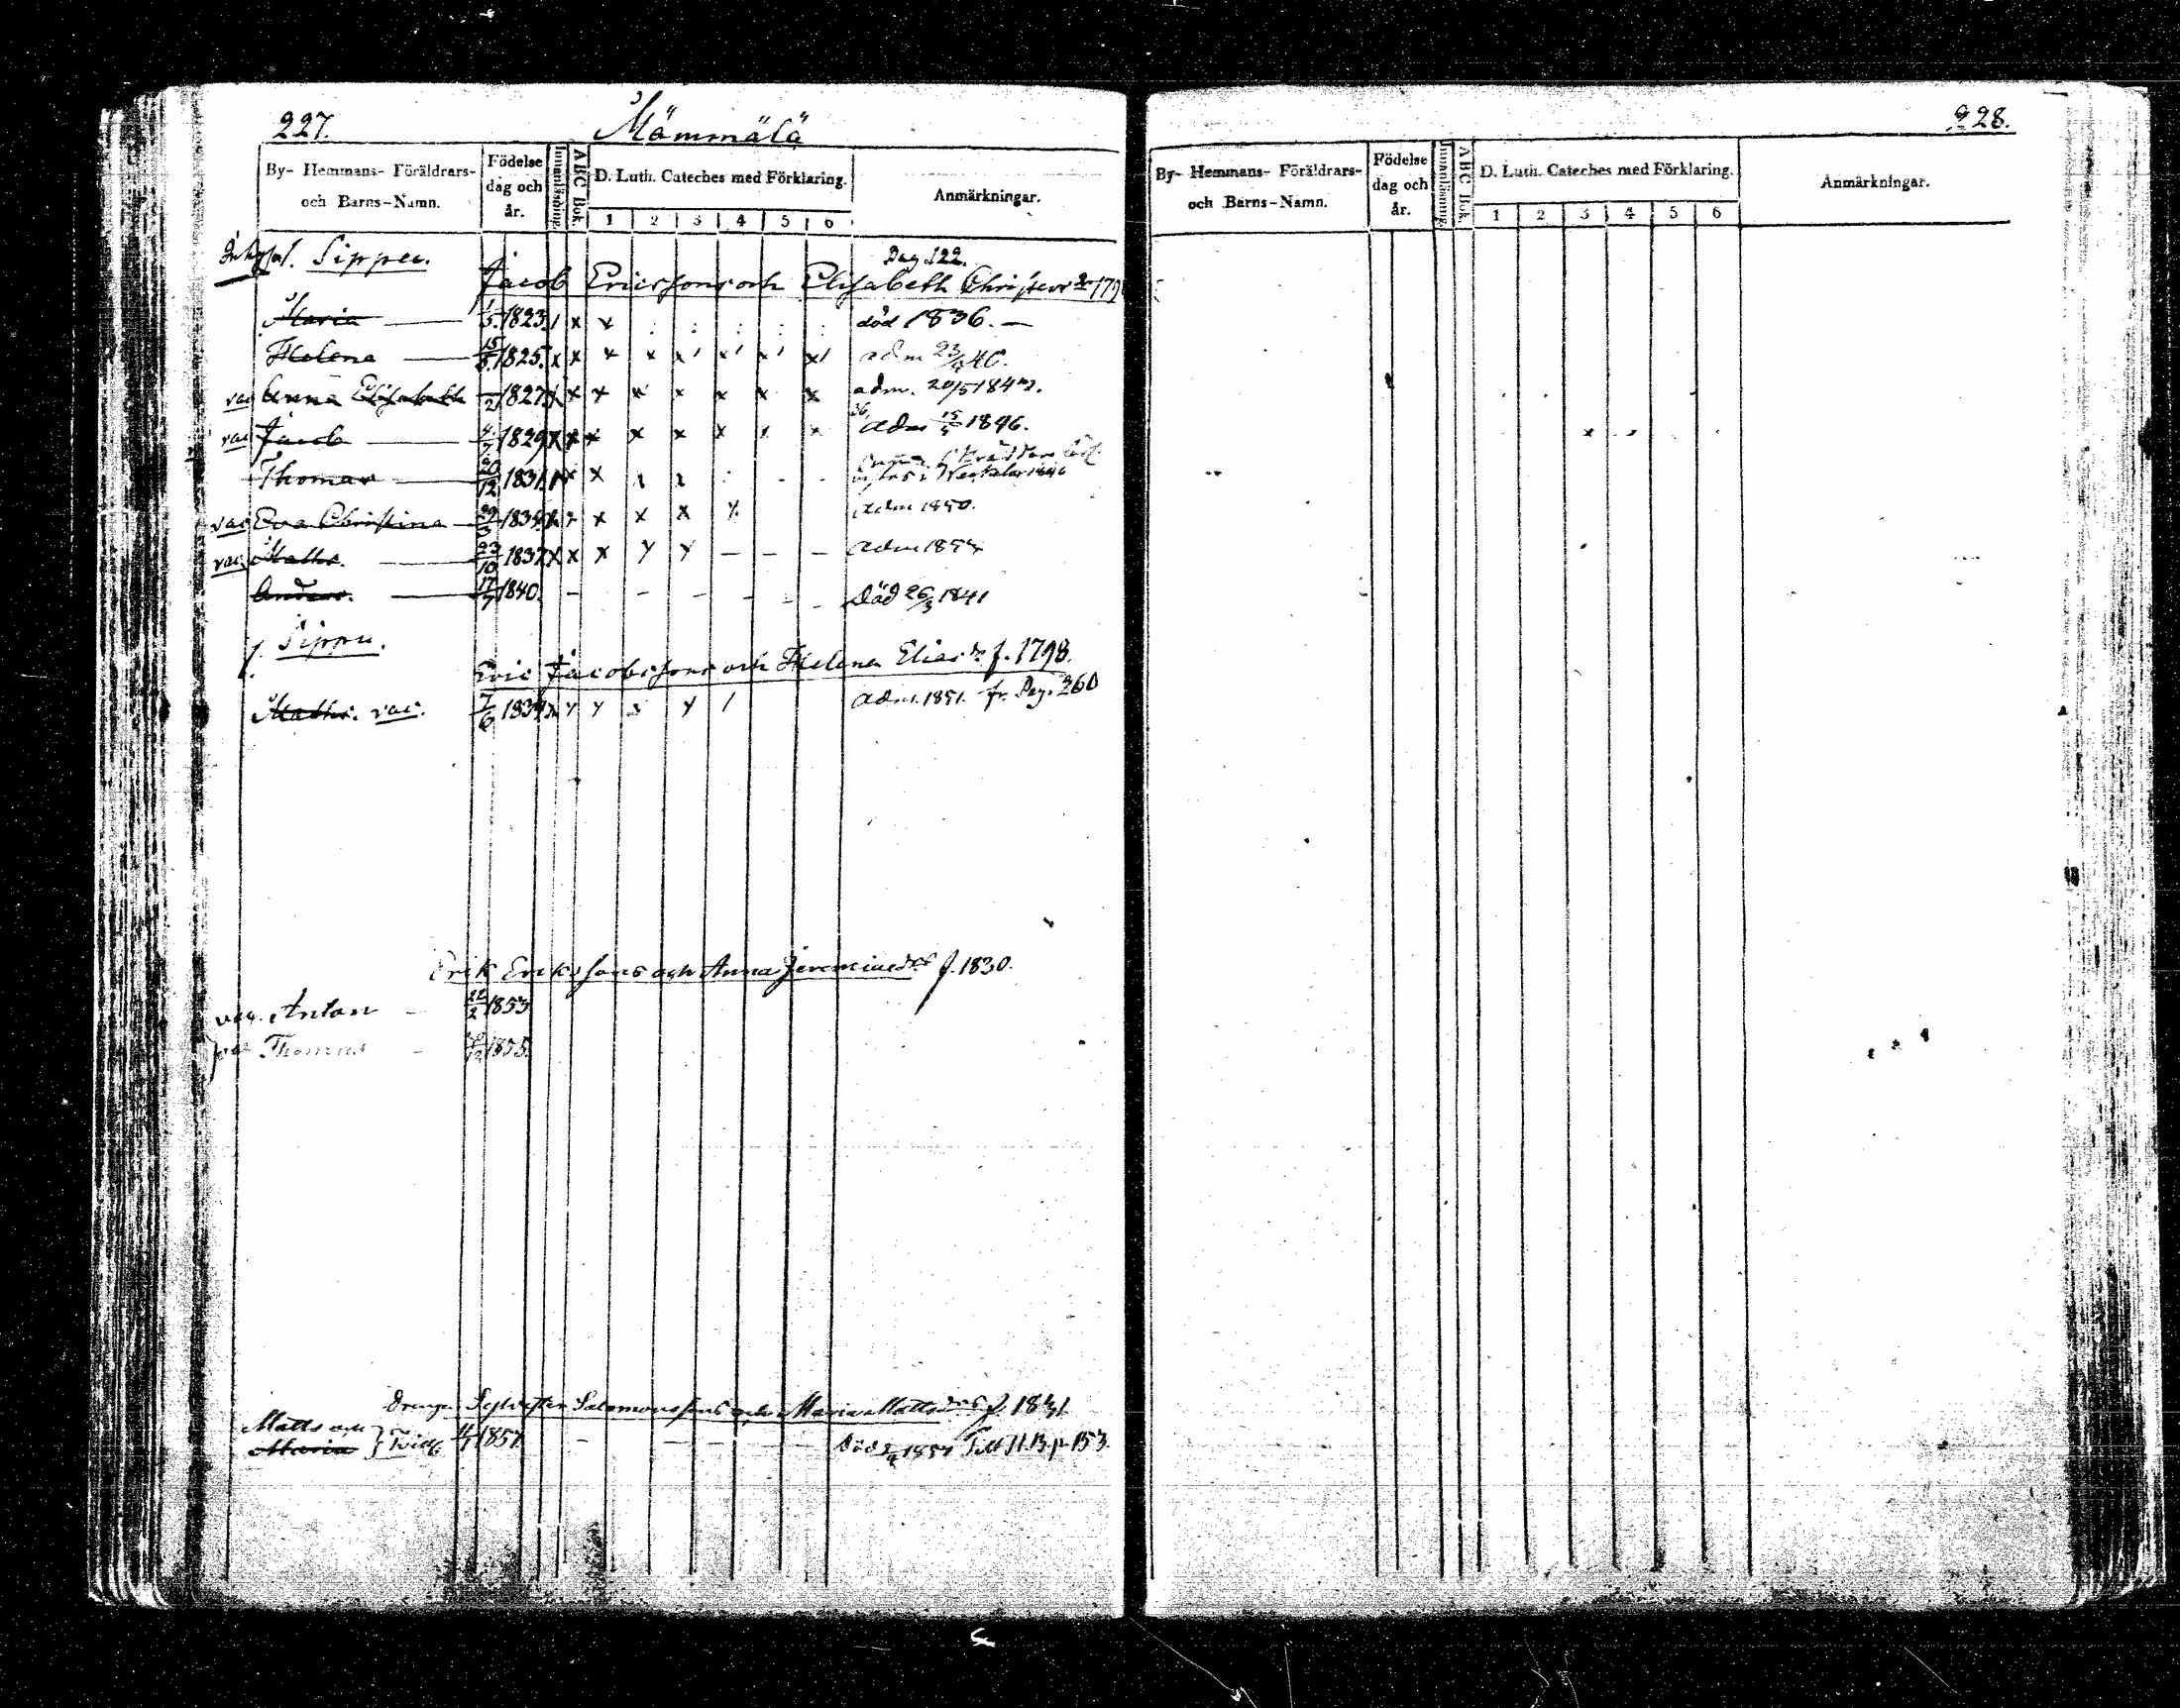 227. Mämmälä
By- Hemmans- Föräldrars- och Barns-Namn. Födelse dag och år. Innanläsning. ABC Bok. D. Luth. Cateches med Förklaring. 1 2 3 4 5 6 Anmärkningar.
Sippu. Pag 122.
Jacob Ericssons och Elisabeth Christers dr
Maria 1/5 1823. död 1836.
Helena 15/5 1825. adm 23/
vac Anna Elisabeth 1827 adm. 20/5 184
vac Jacob 4/7 1829 adm 15/5 1846.
Thomas 20/12 1831
vac Eva Christina 1834 adm 1850.
vac. Matts. 23/10 1837 adm 1854
Anders. 17/7 1840. Död 26/3 1841
Sippu.
Eric Jacobssons och Helena Elias dr f. 1798.
Matts. vac. 7/6 1834 adm. 1851. fr. Pag. 260
Erik Erikssons och Anna Jeremiaedrs f. 1830.
vac. Anton 22/2 1853
vac Thomas 1855.
Drengen Sylvester Salomonssons och Maria Mattsdrs f. 1831
Matts och
Maria } Tvill. 1857. Död 1857 Till H.B. p 153.
228.
By- Hemmans- Föräldrars- och Barns-Namn. Födelse dag och år. Innanläsning. ABC Bok. D. Luth. Cateches med Förklaring. 1 2 3 4 5 6 Anmärkningar.